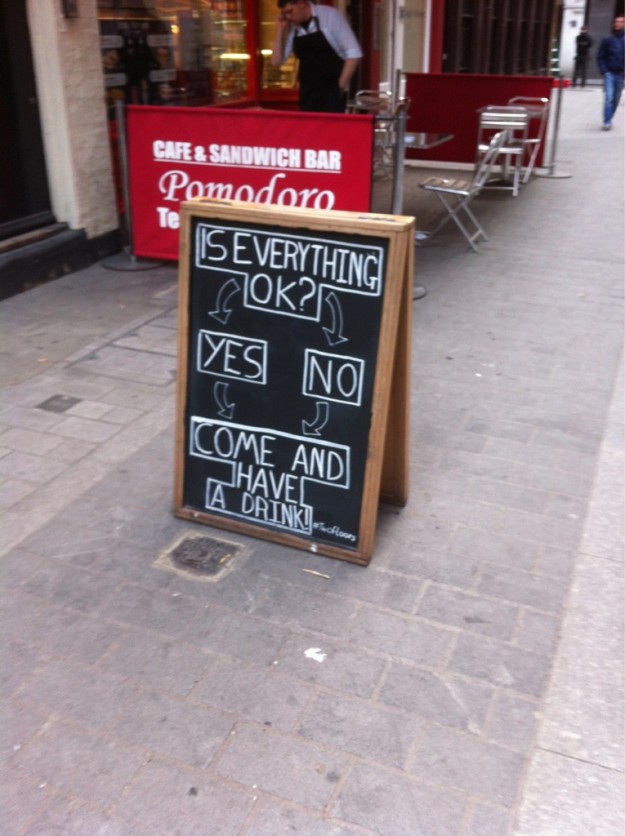 CAFE & SANDWICH BAR
Pomodoro
Te
IS EVERYTHING
OK?
YES
NO
COME AND
HAVE
A DRINK!
#TwoFloors